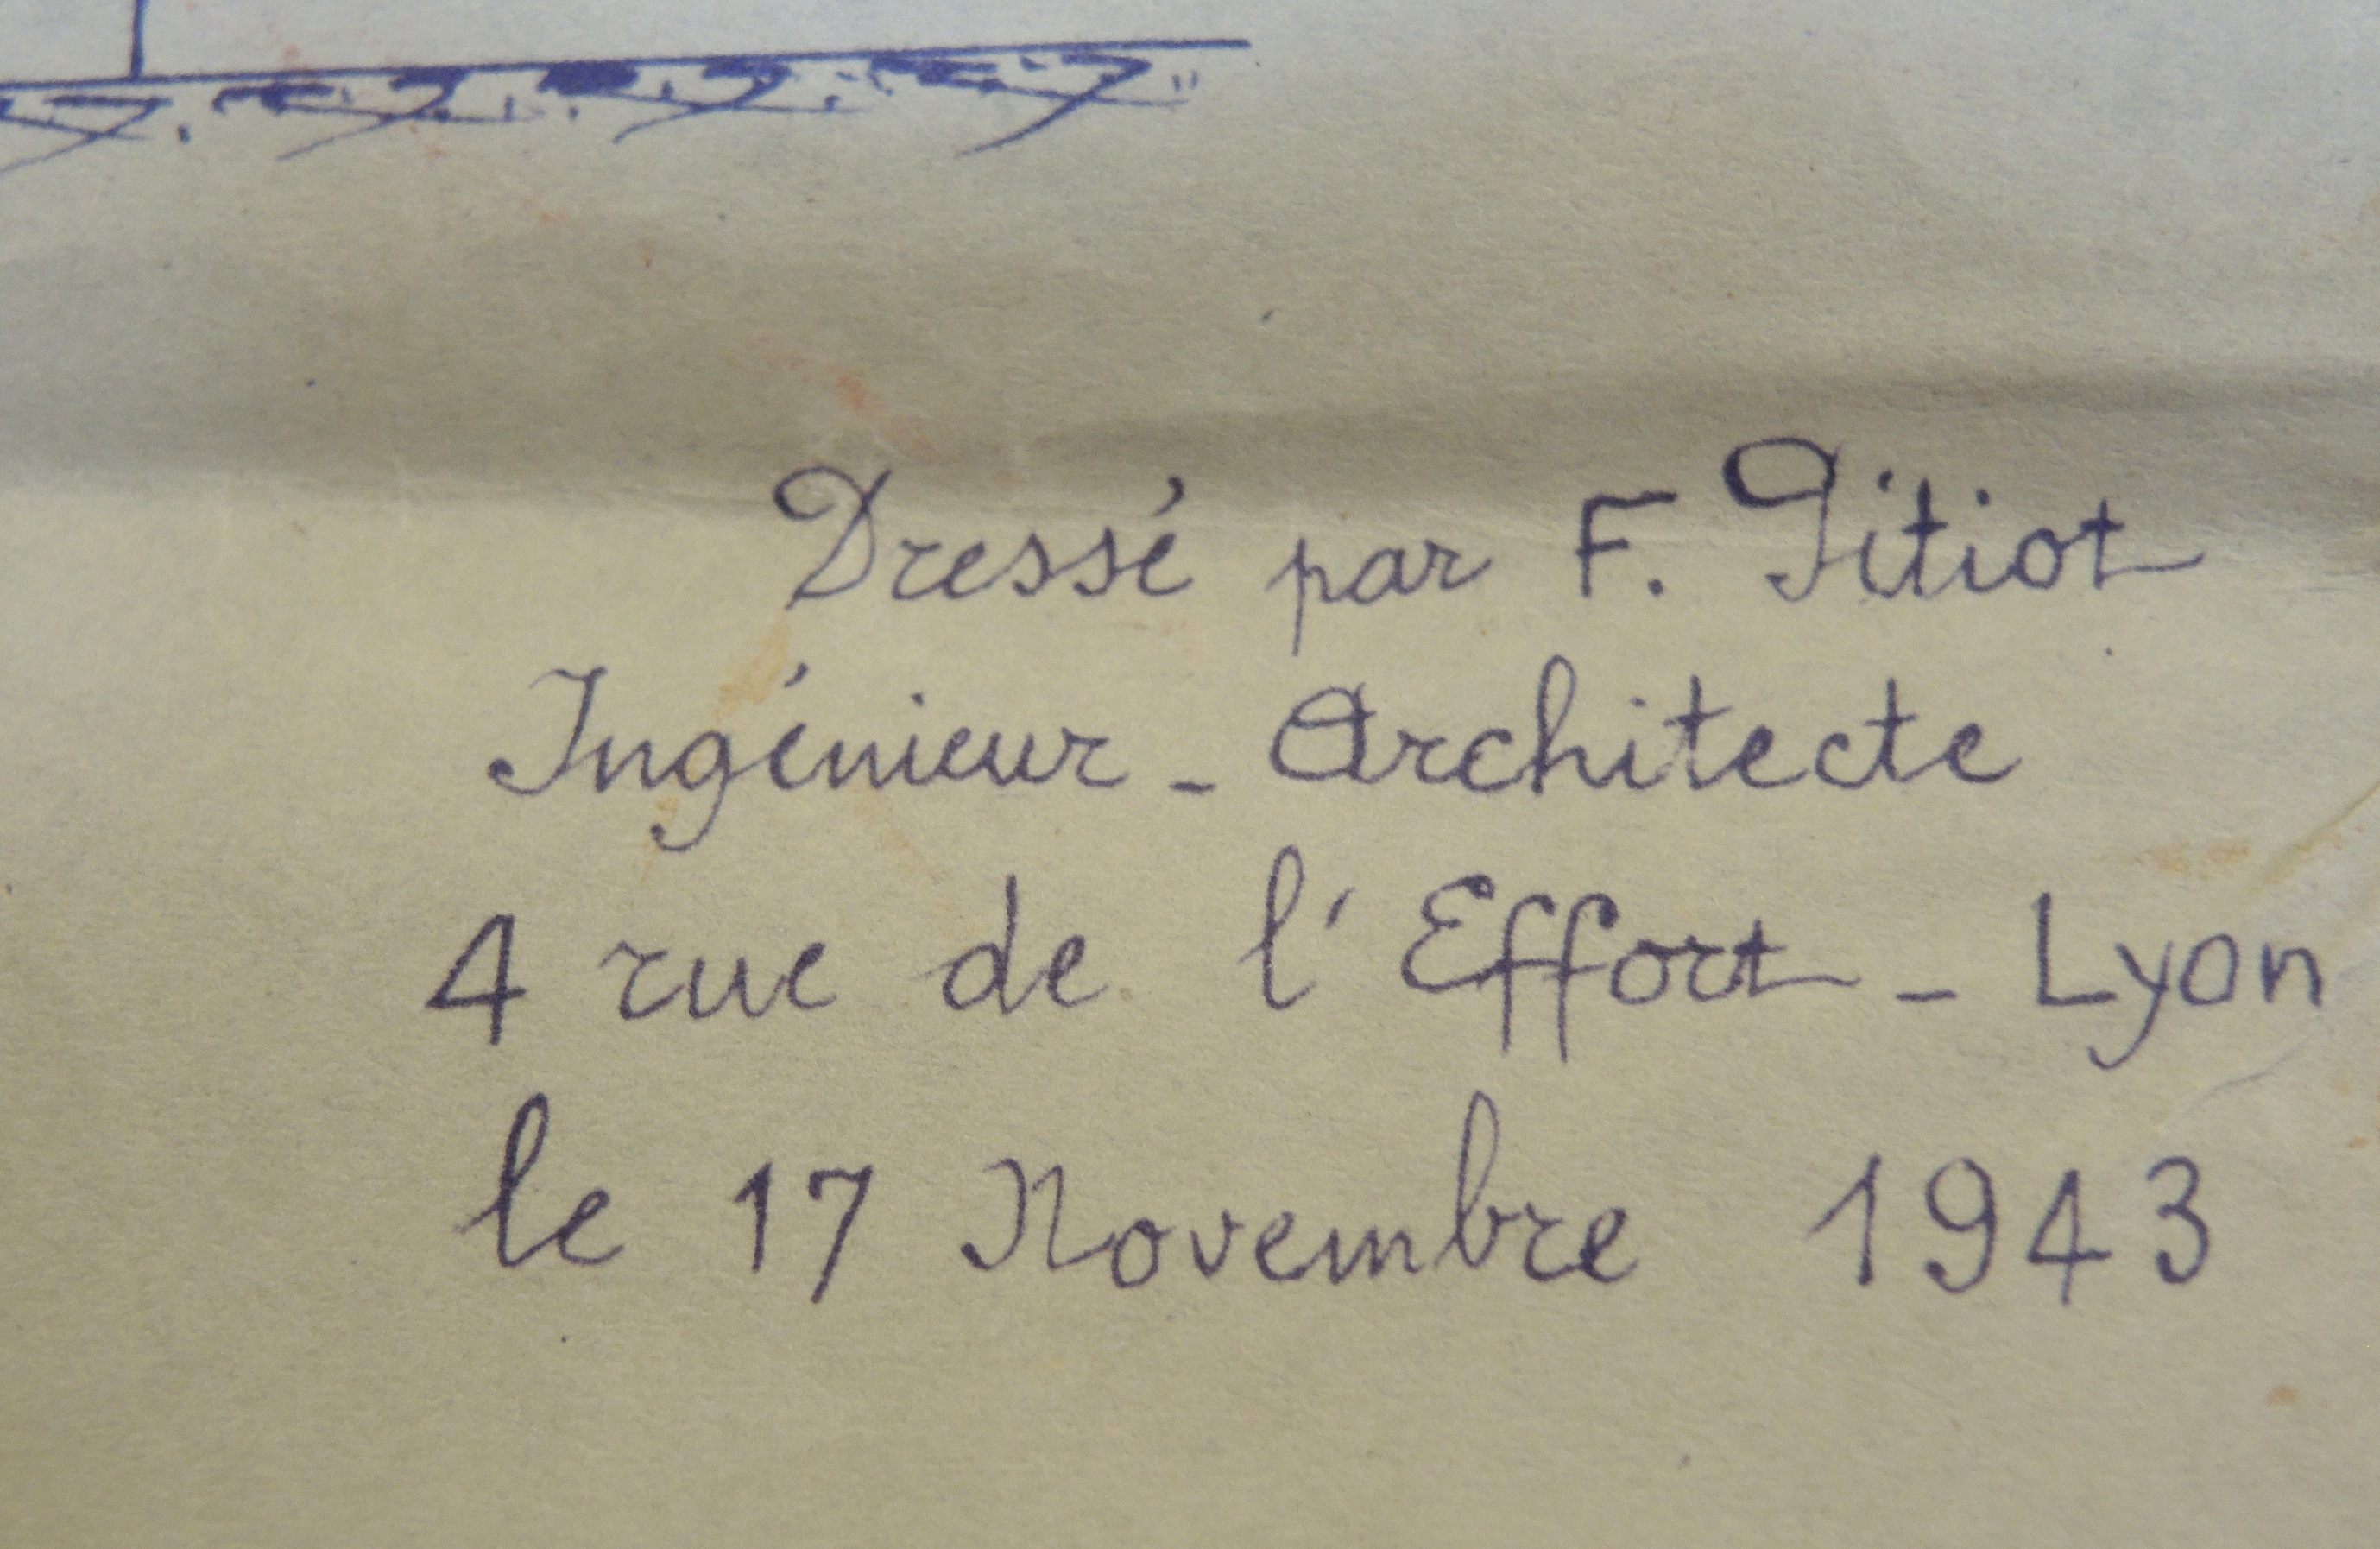 Dressé par F. Pitiot
Ingénieur - Architecte
4 rue de l'Effort - Lyon
le 17 Novembre 1943